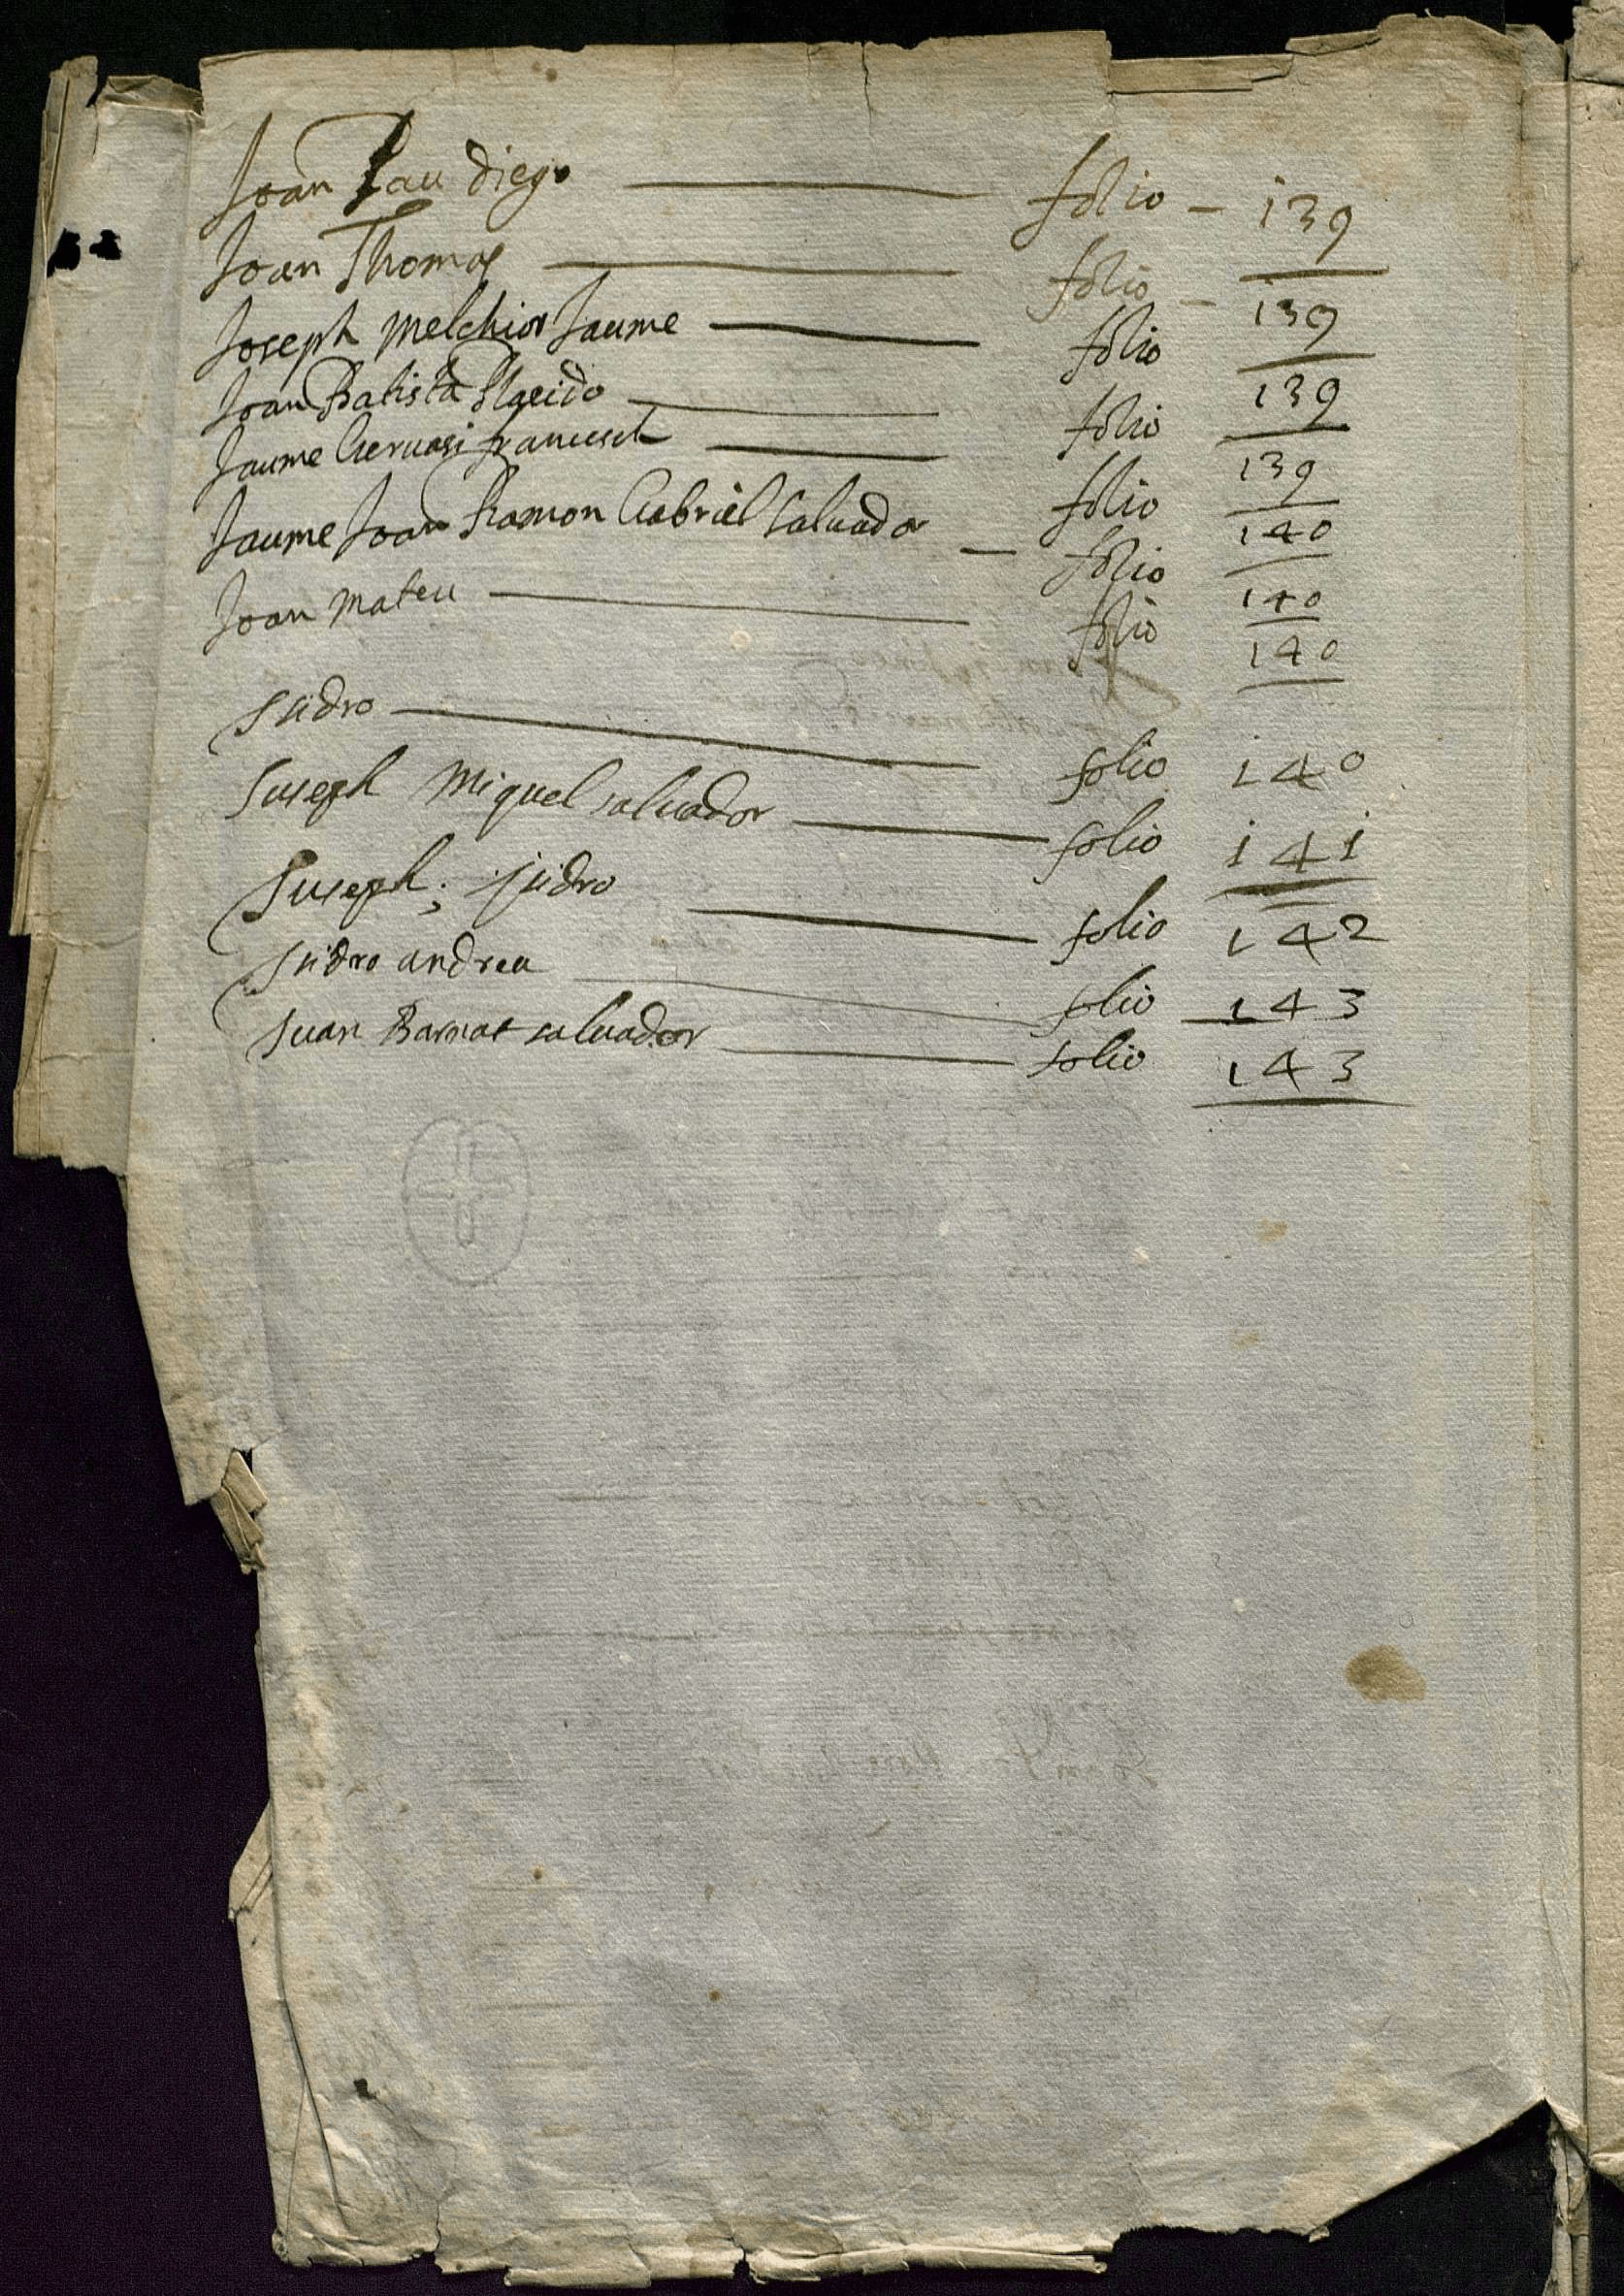 Joan Pau diego folio - 139
Joan Thomas folio - 139
Joseph Melchior Jaume folio 139
Joan Batista Placido folio 139
Jaume Gervasi francesch folio 140
Jaume Joan Ramon Gabriel Salvador folio 140
Joan Mateu folio 140
Isidro folio 140
Juseph Miquel salvador folio 141
Juseph; isidro folio 142
Isidro andreu folio 143
Juan Barnat salvador folio 143